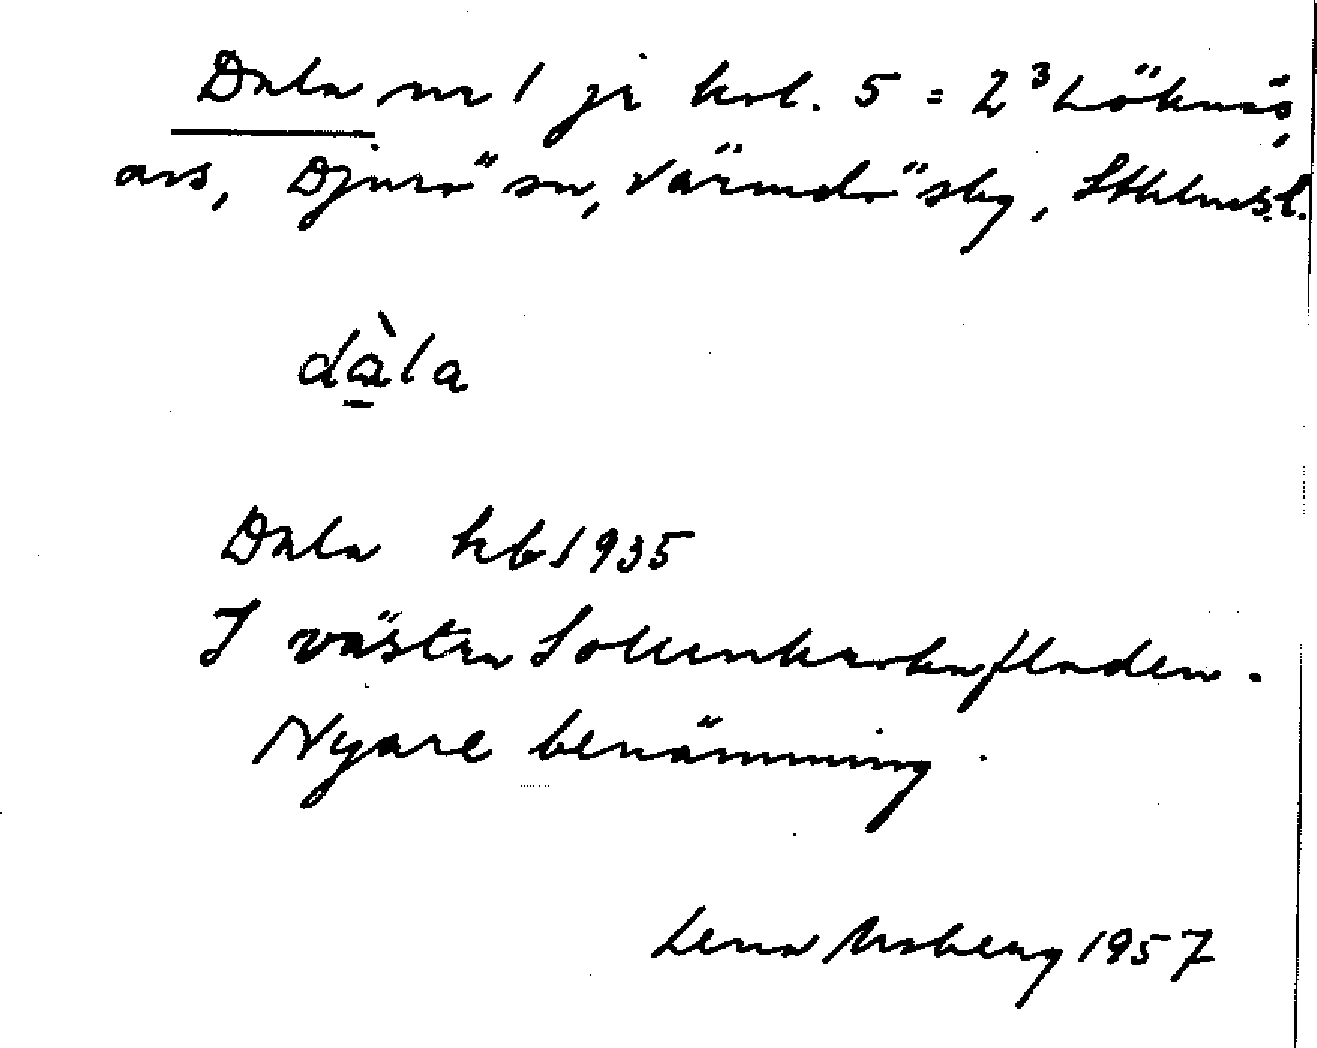 Dala nr 1 jr kol. 5 = 2³ Löknäs,
avs, Djurö sn, Värmdö skg, Sthlms l.
dàla
Dala kb 1935
I västra Sollenkrokafladen.
Nyare benämning.
Lena Moberg 1957